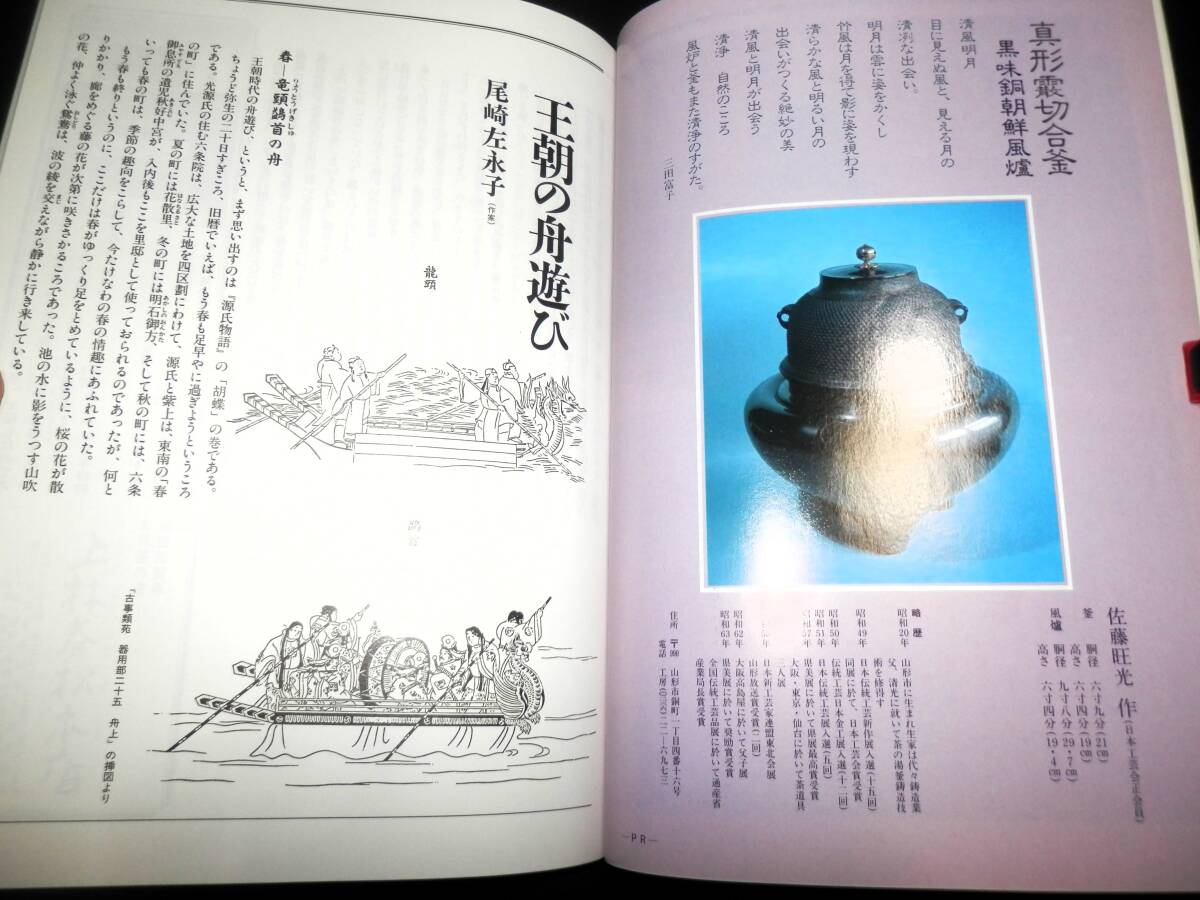 真形霰切合釜
黒味銅朝鮮風爐
清風明月
目に見えぬ風と、見える月の
清冽な出会い。
明月は雲に姿をかくし
竹風は月を得て影に姿を現わす
清らかな風と明るい月の
出会いがつくる絶妙の美
清風と明月が出会う
清浄 自然のこころ
風炉と釜もまた清浄のすがた。
三田富子
佐藤旺光 作(日本工芸会正会員)
釜 胴径 六寸九分(21㎝)
高さ 六寸(19㎝)
風爐 胴径 九寸八分(29・7㎝)
高さ 六寸四分(19・4㎝)
略歴
昭和20年 山形市に生まれ生家は代々鋳造業
父、清光に就いて茶の湯釜鋳造技
術を修得す
昭和49年 日本伝統工芸新作展入選(十五回)
同展に於て、日本工芸会賞受賞
昭和50年 伝統工芸日本金工展入選(十二回)
昭和51年 日本伝統工芸展入選(五回)
昭和57年 県美展に於いて県展最高賞受賞
大阪・東京・仙台に於いて茶道具
三人展
日本新工芸家連盟東北会展
山形放送賞受賞(二回)
昭和62年 大阪高島屋に於いて父子展
昭和63年 県美展に於いて奨励賞受賞
全国伝統工芸品展に於いて通産省
産業局長賞受賞
住所 〒990 山形市銅町一丁目四番十六号
電話 工房(〇二三六)二二-六九七三
—PR—
王朝の舟遊び
尾崎左永子
(作家)
龍頭
鷁首
春―竜頭鷁首の舟
りょうとうげきしゅ
王朝時代の舟遊び、というと、まず思い出すのは『源氏物語』の「胡蝶」の巻である。
ちょうど弥生の二十日すぎころ、旧暦でいえば、もう春も足早やに過ぎようというころ
である。光源氏の住む六条院は、広大な土地を四区劃にわけて、源氏と紫上は、東南の「春
の町」に住んでいた。夏の町には花散里、冬の町には明石御方、そして秋の町には、六条
御息所の遺児秋好中宮が、入内後もここを里邸として使っておられるのであったが、何と
いっても春の町は、季節の趣向をこらして、今たけなわの春の情趣にあふれていた。
もう春も終りというのに、ここだけは春がゆっくり足をとめているように、桜の花が散
りかかり、廊をめぐる藤の花が次第に咲きさかるころであった。池の水に影をうつす山吹
の花、仲よく泳ぐ鴛鴦は、波の綾を交えながら静かに行き来している。
『古事類苑 器用部二十五 舟上』の挿図より